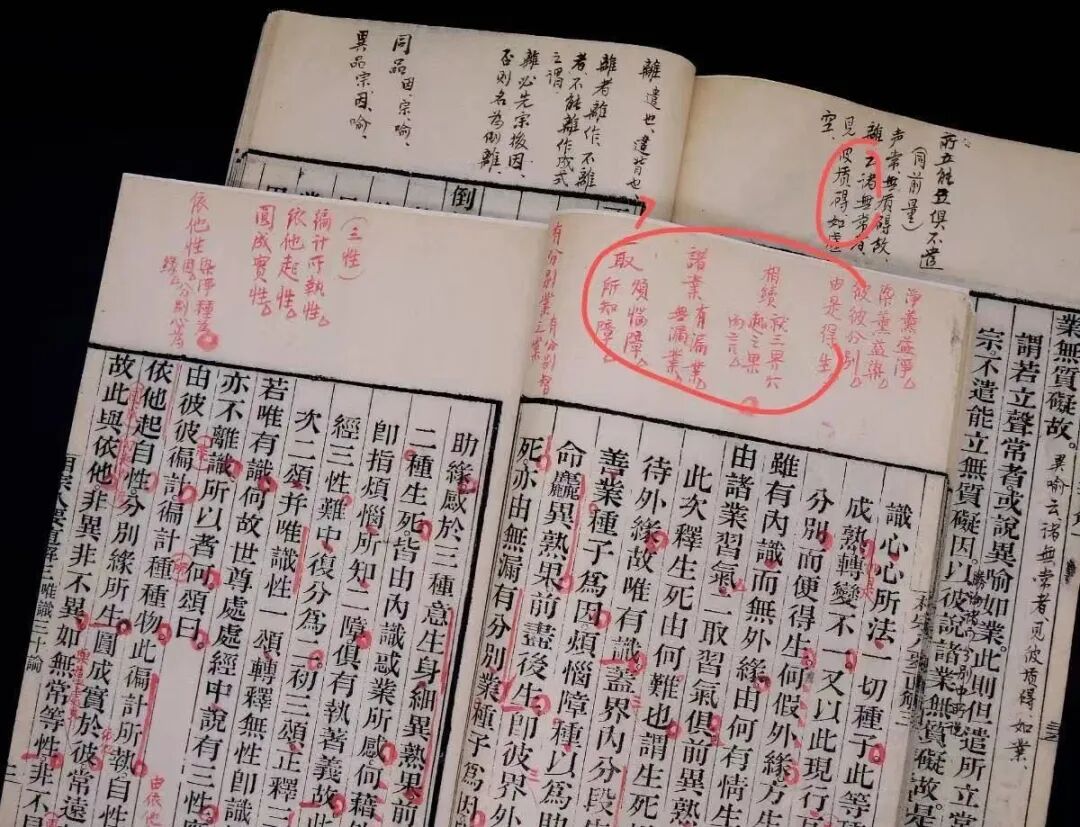 前五能立俱不遣
(同前量)
声常、無质碍故、
離云諸無常者
見彼质碍如虚
空
離遣也、遣背也、
離者離作、不離
者、不能離作成式
之謂、
離必先宗後因、
否則名為倒離、
同品因、宗、喻、
異品宗、因、喻、
業無質礙故。
異喻云諸無常者、見彼质碍、如業、
謂若立聲常者或說異喻如業。此則但遣所立常
宗。不遣能立無質礙因。以彼說諸業無質礙故。是
倒
淨薰益淨
染薰益染
彼彼分別
由是得生
相續
諸業 有漏業
無漏業
二取 煩惱障
所知障
有分別業
識心心所法一切種子此等
成熟轉變不一又以此現行
分別而便得生何假外緣方
雖有內識而無外緣由何有情生
由諸業習氣二取習氣俱前異熟
此次釋生死由何難也謂生死
待外緣故唯有識蓋界內分段生
善業種子為因煩惱障種以為
命麤異熟果前盡後生即彼界外
死亦由無漏有分別業種子為因
(三性)
徧計所執性
依他起性
圓成實性
依他性
助緣感於三種意生身細異熟果前
二種生死皆由內識惑業所感何藉
即指煩惱所知二障俱有執著義故
經三性難中復分為二初三頌正釋三
次二頌并唯識性一頌轉釋無性即識
若唯有識何故世尊處處經中說有三性
亦不離識所以者何頌曰
由彼彼徧計徧計種種物此徧計所執自性
依他起自性分別緣所生圓成實於彼常遠
故此與依他非異非不異如無常等性非不
由依他